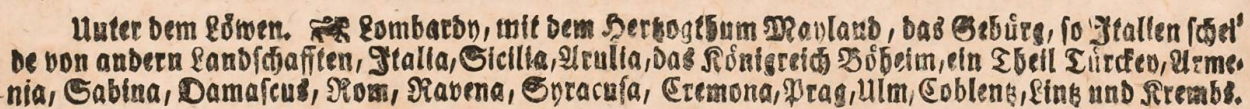 Unter dem Löwen. ♌ Lombardy, mit dem Hertzogthum Mayland, das Gebürg, so Italien schei⸗
de von andern Landschafften, Italia, Sicilia, Arulia, das Königreich Böheim, ein Theil Türckey, Arme⸗
nia, Sabina, Damascus, Rom, Ravena, Syracusa, Cremona, Prag, Ulm, Coblentz, Lintz und Krembs.